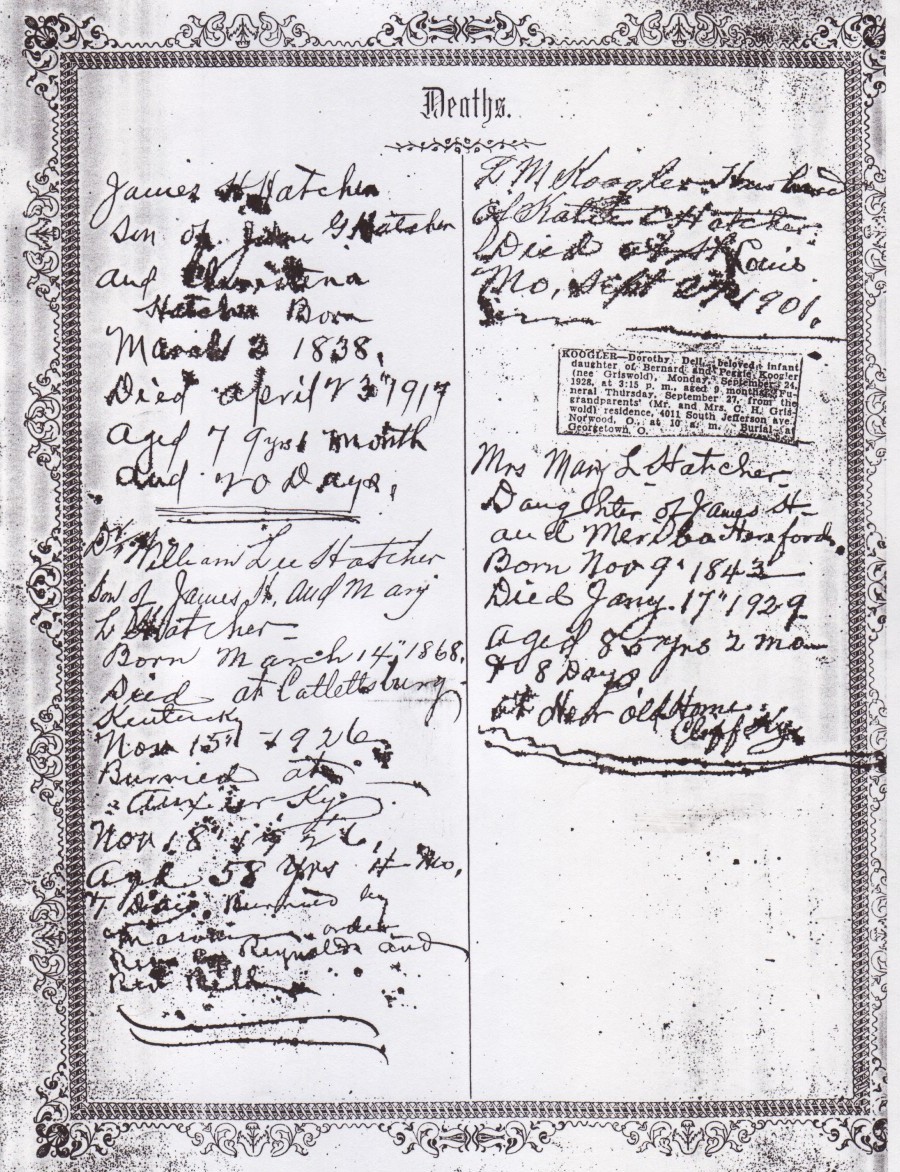 Deaths.
James H Hatcher
Son of G Hatcher
and Christena
Hatcher Born
March 3 1838.
Died April 23" 1917
Aged 79 yrs 1 month
and 20 Days.
Dr William Lee Hatcher
Son of James H. and Mary
L Hatcher
Born March 14" 1868.
Died at Catlettsburg
Kentucky
Nov 15" 1926
Burried at
Auxier Ky.
Nov 18" 1926,
Age 58 yrs Mo.
Burried by
Masonic order
Reynolds and
Rev Bell
F M Koogler Husband
of Katie C Hatcher
Died at St Louis
Mo, Sept 27 1901.
KOOGLER—Dorothy Dell, beloved infant
daughter of Bernard and Peggie Koogler
(nee Griswold), Monday, September 24,
1928, at 3:15 p. m., aged 9 months. Fu-
neral Thursday, September 27, from the
grandparents' (Mr. and Mrs. C. H. Gris-
wold) residence, 4011 South Jefferson ave.
Norwood, O., at 10 a. m. Burial at
Georgetown O.
Mrs Mary L Hatcher
Daughter of James H
and Hereford.
Born Nov 9" 1843
Died Jany. 17" 1929
Aged 85 yrs 2 mo
& 8 Days
at Her old Home
Cliff Ky.